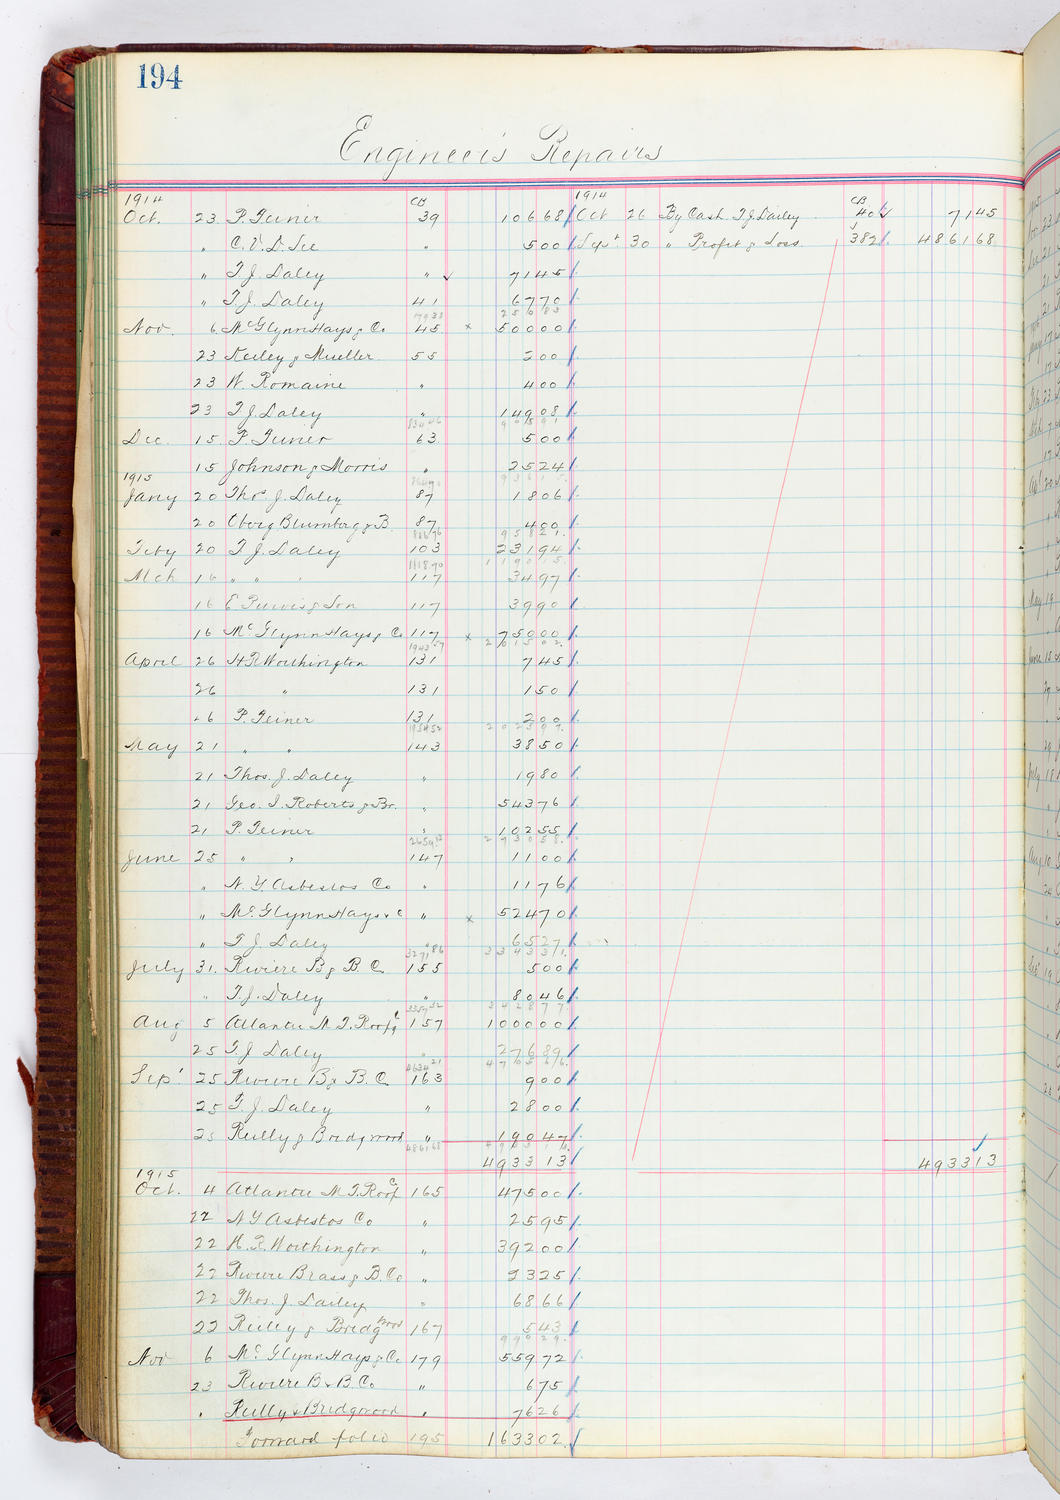 194
Engineer's Repairs
1914 CB 1914 CB
Oct. 23 P. Feiner 39 106 68 Oct 26 By Cash T.J. Dailey 40 71 45
" C.V.D. See " 5 00 Sept 30 " Profit & Loss 382 4861 68
" T.J. Daley " 71 45
" T.J. Daley 41 67 70
256 83
Nov. 6 McGlynn Hays & Co 45 x 500 00
23 Keiley & Mueller 55 2 00
23 W. Romaine " 4 00
23 T.J. Daley " 149 08
Dec. 15 P. Feiner 63 5 00
15 Johnson & Morris " 25 24
1915
Jany 20 Thos. J. Daley 87 18 06
20 Oberg Blumberg & B. 87 4 00
958 21
Feby 20 T.J. Daley 103 231 94
1190 15
Mch 16 " " " 117 34 97
16 E Purvis & Son 117 39 90
16 McGlynn Hays & Co 117 x 750 00
2015 02
April 26 H.R. Worthington 131 7 45
26 " 131 1 50
26 P. Feiner 131 2 00
May 21 " " 143 38 50
21 Thos. J. Daley " 19 80
21 Geo. I. Roberts & Br. " 543 76
21 P. Feiner " 102 55
2930 58
June 25 " " 147 11 00
" N.Y. Asbestos Co " 11 76
" McGlynn Hays & C " x 524 70
" T.J. Daley " 65 27
3271 86 3343 31
July 31. Riviere B & B. C 155 5 00
" T.J. Daley " 80 46
3357 32 3428 77
Aug 5 Atlantic M.T. Roofg 157 1000 00
25 T.J. Daley " 276 89
4634 21 4705 66
Sept 25 Riviere B & B. C 163 9 00
25 T.J. Daley " 28 00
25 Reilly & Bridgwood " 190 47
4861 68
4933 13 4933 13
1915
Oct. 4 Atlantic M.T. Roof 165 475 00
22 N.Y Asbestos Co " 25 95
22 H.R. Worthington " 392 00
22 Riviere Brass & B. Co " 23 25
22 Thos. J. Dailey " 68 66
22 Reiley & Bridgwood 167 5 43
990 29
Nov 6 McGlynn Hays & Co 179 559 72
23 Riviere B & B. Co " 6 75
" Reilly & Bridgwood " 76 26
Forward folio 195 1633 02